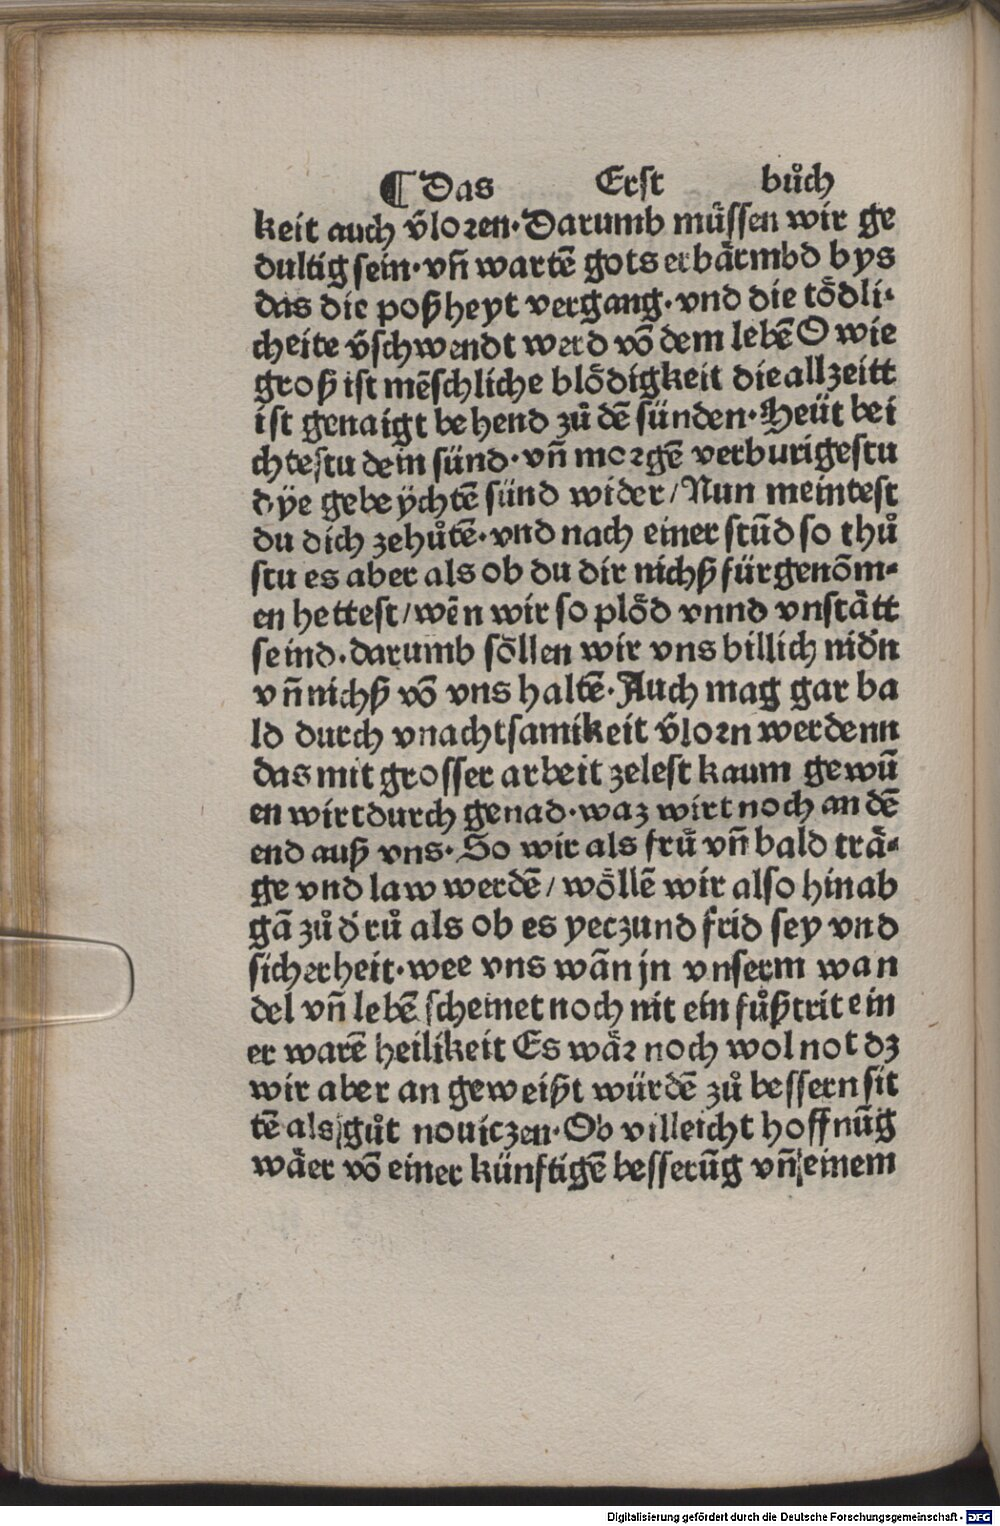 ¶ Das Erst bůch
keit auch ṽloren·Darumb müssen wir ge
dultig sein·vñ wartẽ gots erbärmbd bys
das die poßheyt vergang·vnd die tödli-
cheite ṽschwendt werd võ dem lebẽ O wie
groß ist mẽschliche blödigkeit die allzeitt
ist genaigt behend zů dẽ sünden·Heüt bei
chtestu dein sünd·vñ morgẽ verburigestu
dÿe gebeÿchtẽ sünd wider/Nun meintest
du dich zehůtẽ·vnd nach einer stũd so thů
stu es aber als ob du dir nichß fürgenõm-
en hettest/wẽn wir so plöd vnnd vnstätt
seind·darumb söllen wir vns billich nidn̄
vñ nichß võ vns haltẽ·Auch mag gar ba
ld durch vnachtsamikeit ṽlorn werdenn
das mit grosser arbeit zelest kaum gewũ
en wirt durch genad·waz wirt noch an dẽ
end auß vns·So wir als frů vñ bald trä-
ge vnd law werdẽ/wöllẽ wir also hinab
gã zů d̃ rů als ob es yeczund frid sey vnd
sicherheit·wee vns wãn jn vnserm wan
del vñ lebẽ scheinet noch nit ein fůßtrit ein
er warẽ heilikeit Es wär noch wol not dz
wir aber an geweißt würdẽ zů bessern sit
tẽ als gůt nouiczen·Ob villeicht hoffnũg
wäer võ einer künftigẽ besserũg vñ einem
Digitalisierung gefördert durch die Deutsche Forschungsgemeinschaft - DFG